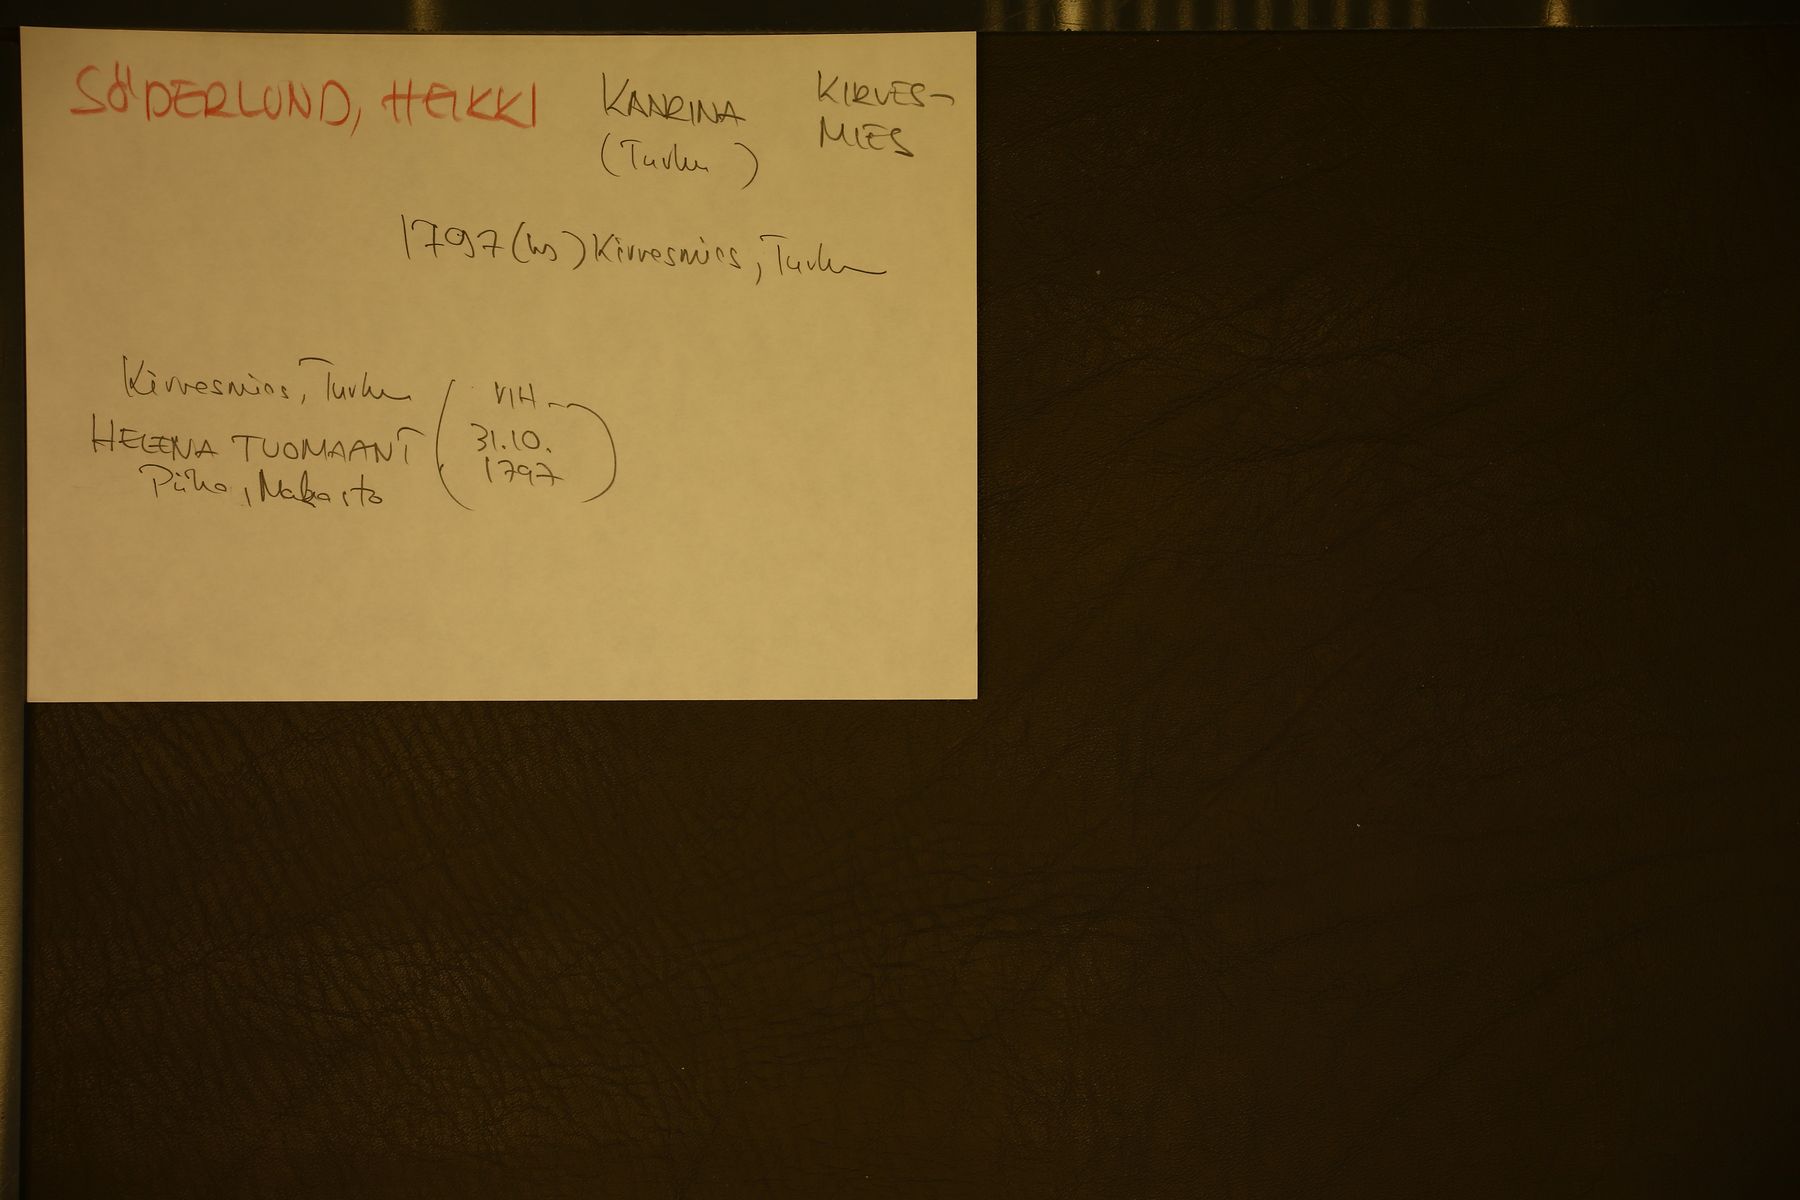 SÖDERLUND, HEIKKI KAARINA KIRVES-
MIES
(Turku)
1797 (hs) Kirvesmies, Turku
Kirvesmies, Turku (VIH
HELENA TUOMAANT 31.10.
Piika, 1797)